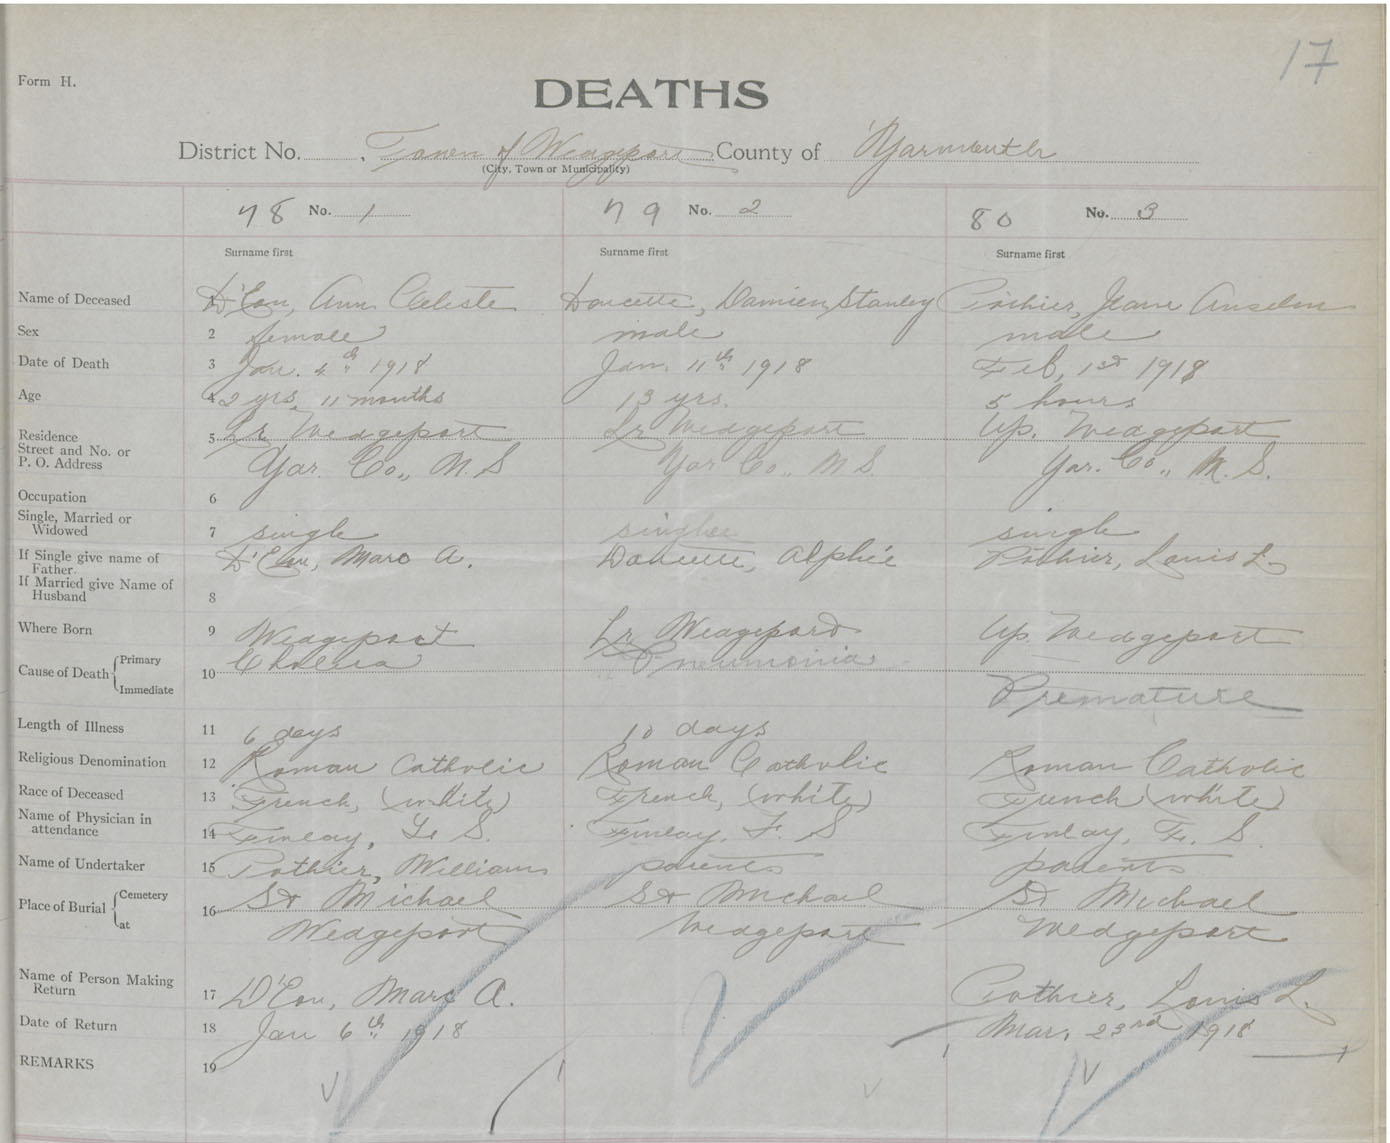 17
Form H.
DEATHS
District No. , Town of Wedgeport County of Yarmouth
(City, Town or Municipality)
78 No. 1 79 No. 2 80 No. 3
Surname first Surname first Surname first
Name of Deceased 1 D'Eon, Ann Celeste Doucette, Damien Stanley Pothier, Jeane Anselm
Sex 2 female male male
Date of Death 3 Jan. 4th 1918 Jan. 11th 1918 Feb, 1st 1918
Age 4 2 yrs, 11 months 13 yrs. 5 hours
Residence 5 Lr Wedgeport Lr Wedgeport Up. Wedgeport
Street and No. or
P. O. Address Yar. Co., N.S Yar Co., N.S. Yar. Co., N.S.
Occupation 6
Single, Married or
Widowed 7 single single single
If Single give name of
Father. D'Eon, Marc A. Doucette, Alphée Pothier, Louis L.
If Married give Name of
Husband 8
Where Born 9 Wedgeport Lr Wedgeport Up. Wedgeport
Cause of Death Primary 10 Cholera Pneumonia
Immediate Premature
Length of Illness 11 6 days 10 days
Religious Denomination 12 Roman Catholic Roman Catholic Roman Catholic
Race of Deceased 13 French, (white) French, (white) French (white)
Name of Physician in
attendance 14 Finlay, F. S. Finlay, F. S Finlay, F. S.
Name of Undertaker 15 Pothier, William parents parents
Place of Burial Cemetery 16 St Michael St Michael St Michael
at Wedgeport Wedgeport Wedgeport
Name of Person Making
Return 17 D'Eon, Marc A. Pothier, Louis L.
Date of Return 18 Jan 6th 1918 Mar. 23rd 1918
REMARKS 19